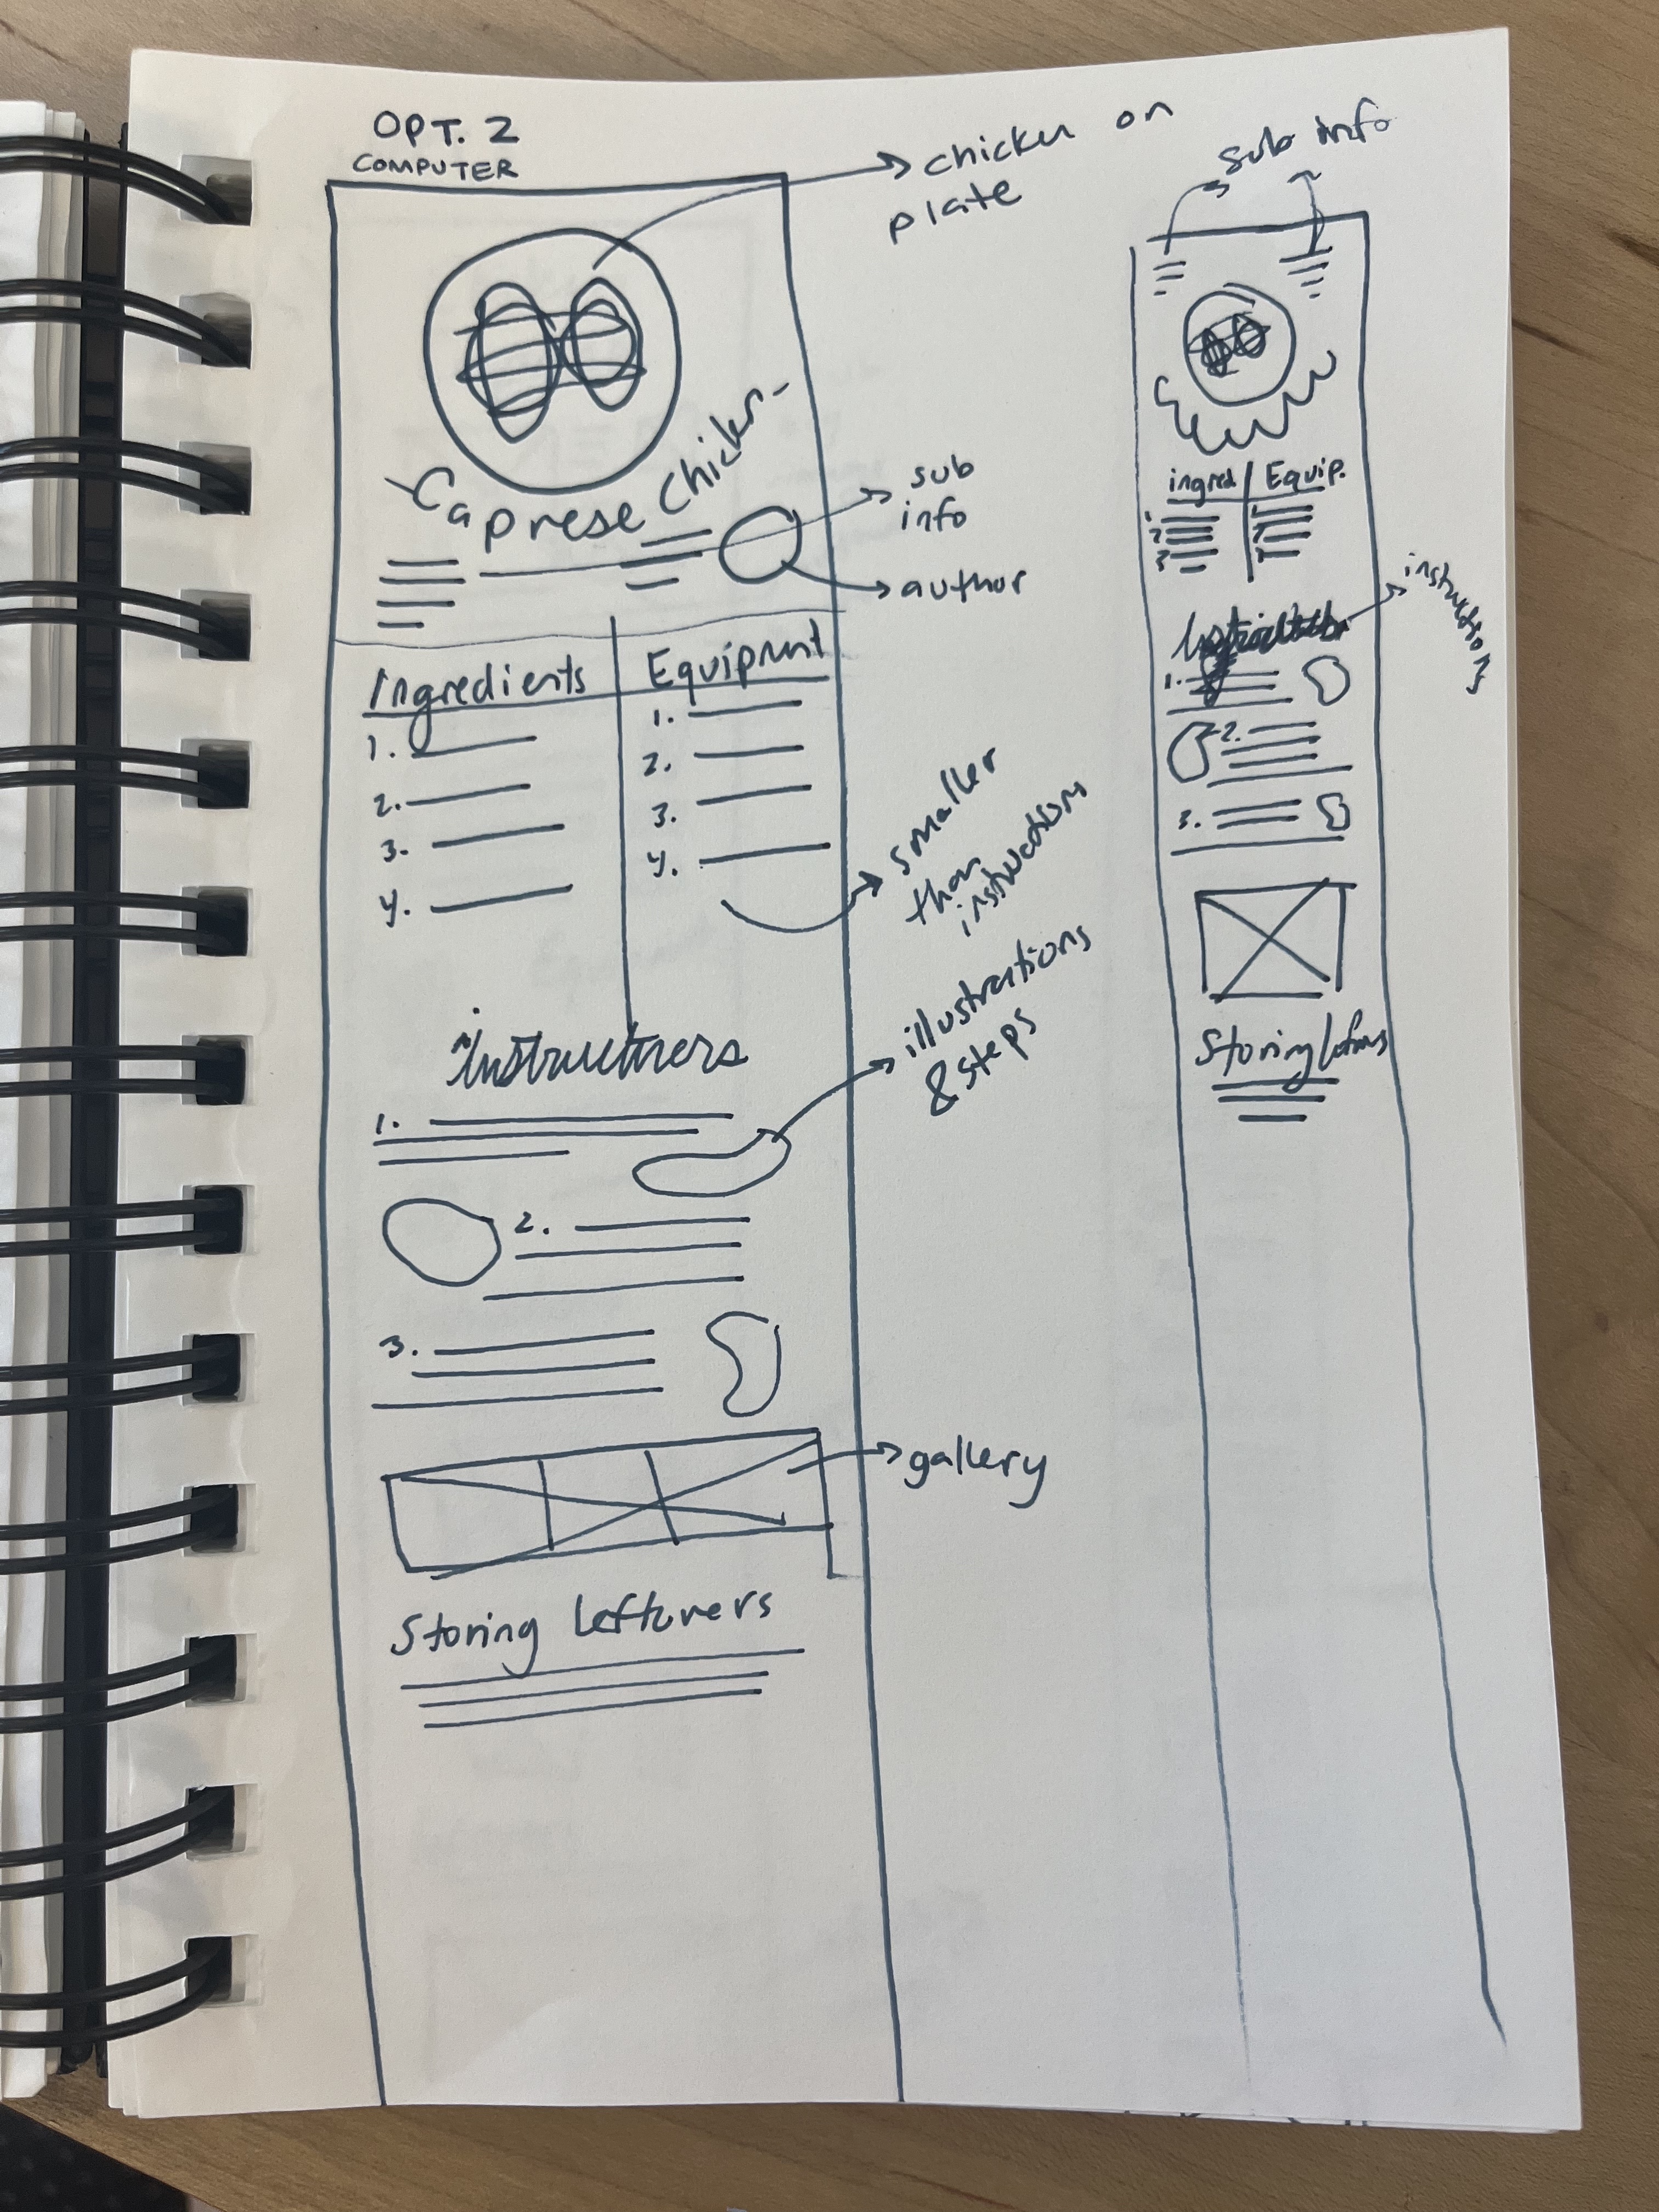 OPT. 2
COMPUTER
chicken on
plate
-Caprese Chicken-
sub
info
author
Ingredients
Equipment
1.
2.
3.
4.
1.
2.
3.
4.
smaller
than
instructions
instructions
1.
2.
3.
illustrations
& steps
gallery
Storing Leftovers
sub info
ingred
Equip.
1.
2.
3.
1.
2.
3.
instructions
1.
2.
3.
Storing